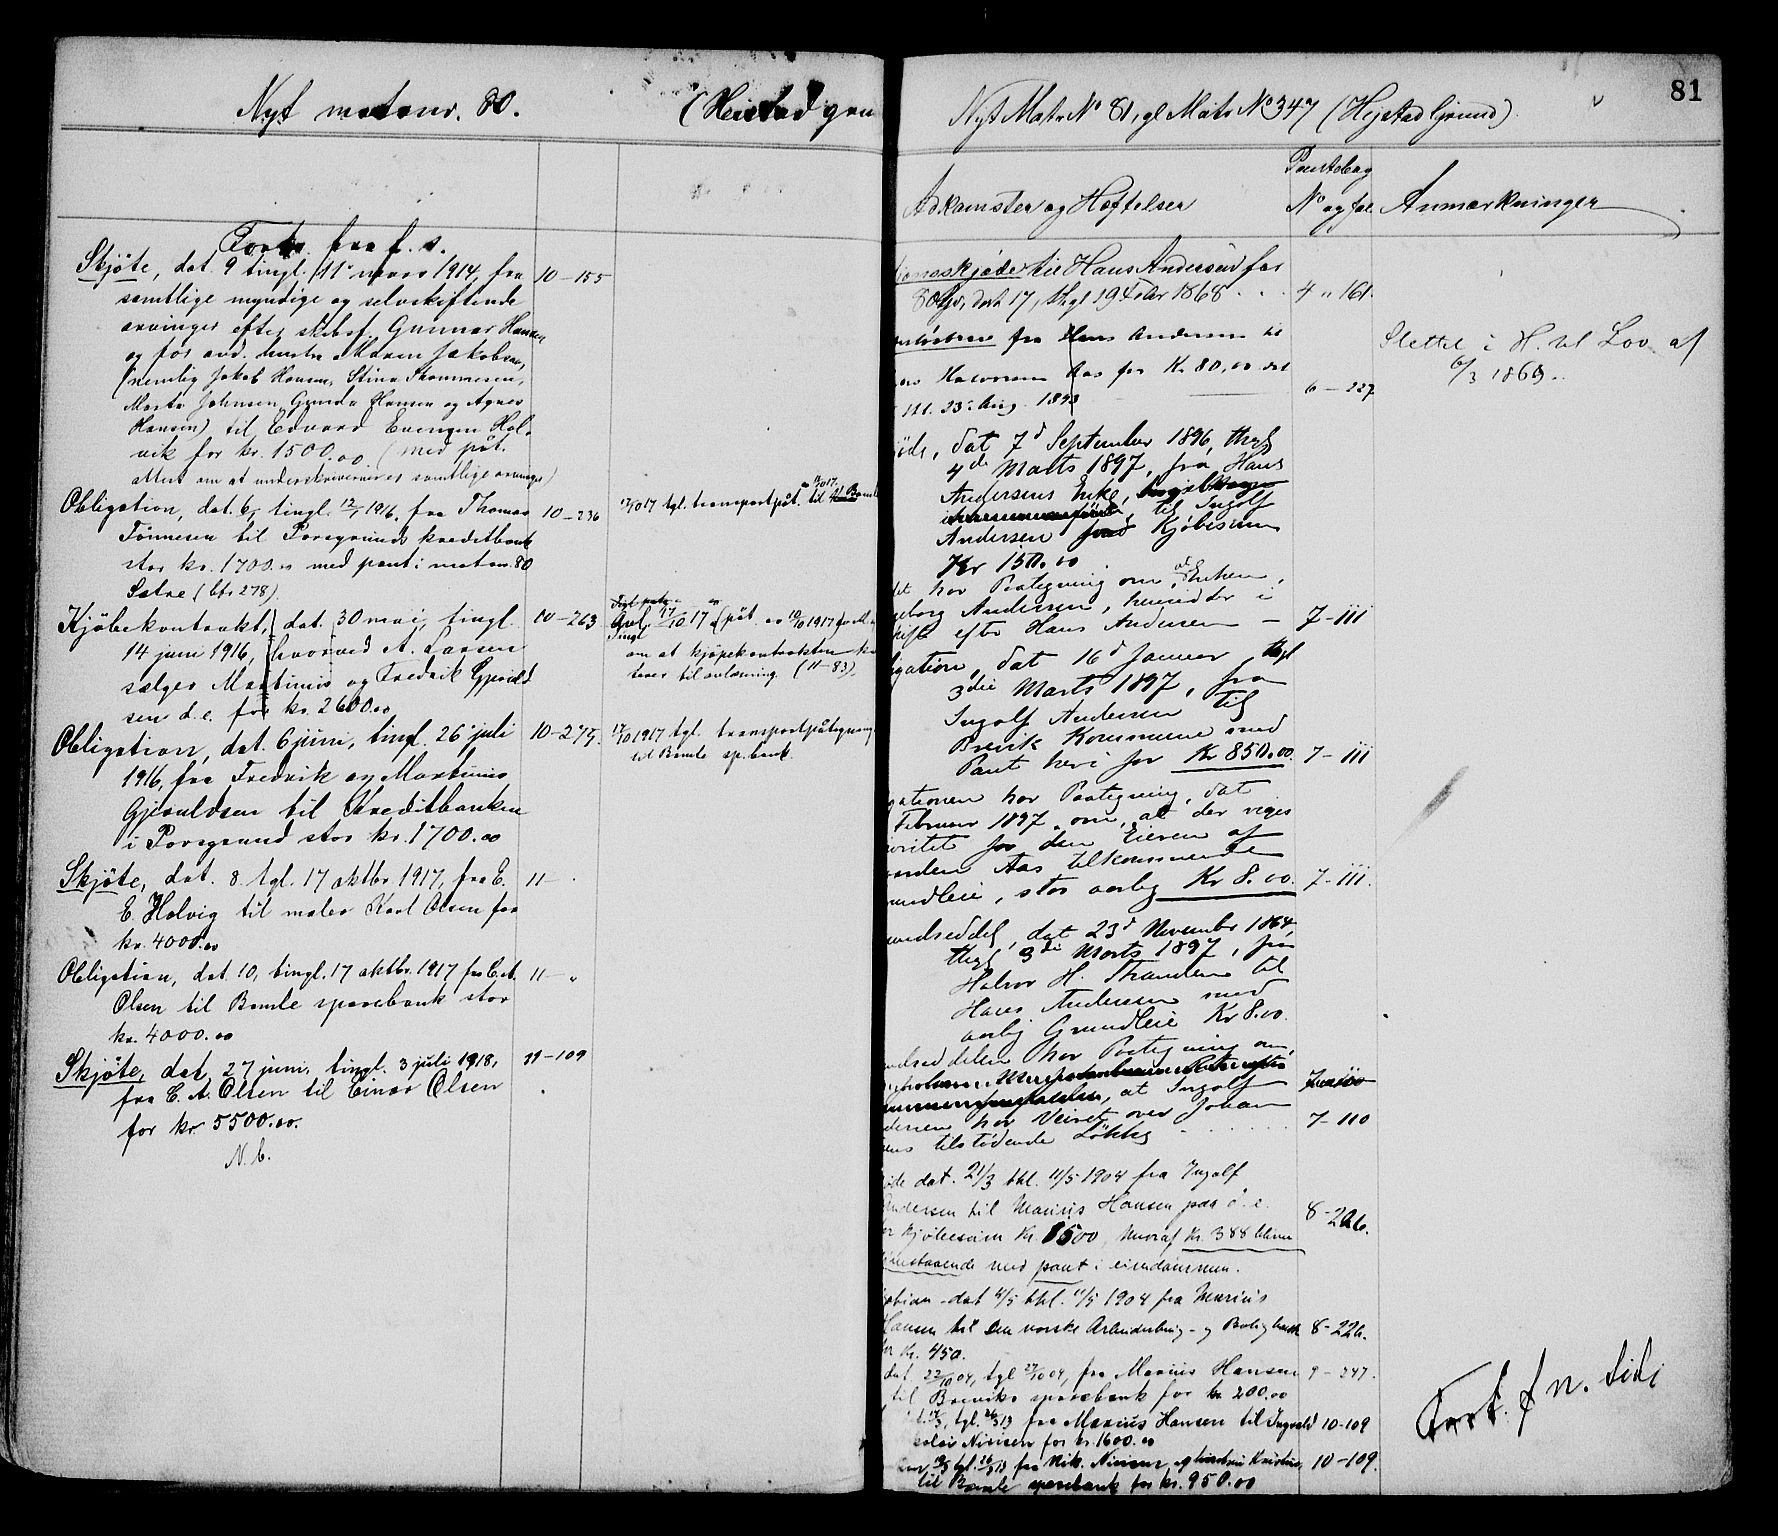 Nyt matrnr. 80. (Heistad grun
Forts. fra f. s.
Skjöte, dat. 9 tingl. 11' mars 1914, fra 10-155
samtlige myndige og selvskiftende
arvinger efter skibsf. Gunnar Hansen
og for avd. hustru Maren Jakobsen,
(nemlig Jakob Hansen, Stina Thommesen,
Marta Johnsen, Gunda Hansen og Agnes
Hansen) til Edvard Evensen Hal-
vik for kr. 1500.00 (med påt.
attest om at underskriverne er samtlige arvinger)
Obligation, dat. 6, tingl. 12/1 1916, fra Thomas 10-236 17/10 17 tgl. transportpåt. til Bamle
Tönnesen til Porsgrunds kreditbank
stor kr. 1700.00 med pant i matrnr. 80
Sætre (bfr 278).
Kjöbekontrakt, dat. 30 mai, tingl. 10-263 Avl. 17/10 17 (påt. 10/10 1917)
14 juni 1916, hvorved A. Larsen om at kjøpekontrakten
sælger Martinus og Fredrik Gjeruld- terer til avløsning. (11-83).
sen d. e. for kr. 2600.00
Obligation, dat. 6 juni, tingl. 26' juli 10-275. 17/10 1917 tgl. transportpåtegning
1916, fra Fredrik og Martinus til Bamle sp.bank.
Gjeruldsen til Kreditbanken
i Porsgrund stor kr. 1700.00
Skjöte, dat. 8. tgl. 17 oktbr. 1917, fra E. 11-
E. Halvig til maler Karl Olsen for
kr. 4000.00
Obligation, dat. 10, tingl. 17 oktbr. 1917 fra C. A. 11- "
Olsen til Bamle sparebank stor
kr. 4000.00
Skjöte, dat. 27 juni, tingl. 3 juli 1918, 11-109
fra C. A. Olsen til Einar Olsen
for kr. 5500.00.
N. b.
81
Nyt Matr. No 81, gl Matr No 347 (Hejstad Grund).
Adkomster og Hæftelser Pantebog No og fol Anmærkninger
ionsskjøde til Hans Andersen for
80 Spd, dat 17, thgl 19 Febr 1868 4 " 161.
fra Hans Andersen til Slettet i H. til Lov af
Halvorsen Aas for Kr 80,00 dat 6/3 1869.
23' Aug. 1893 6-227
øde, dat 7d September 1896, thgl
4de Marts 1897, fra Hans
Andersens Enke,
til Ingolf
Andersen Kjøbesum
Kr 150.00
det har Paategning om at Enken,
geborg Andersen, hensidder i
skifte efter Hans Andersen - 7-111
igation, dat 16d Januar thgl
3die Marts 1897, fra
Ingolf Andersen til
Brevik Kommune med
Pant heri for Kr 850.00. 7-111
gationen har Paategning, dat
Februar 1897, om, at der viges
oritet for den Eieren af
aarden Aas tilkommende
undleie, stor aarlig Kr 8.00. 7-111.
undseddel, dat 23d November 1864,
thgl 3die Marts 1897, fra
Halvor H. Stranden til
Hans Andersen med
aarlig Grundleie Kr 8.00.
undseddelen har Paategning om,
at Ingolf
dersen har Veiret over Johan 7-110
ens tilstødende Løkke
øde dat. 21/3 thl. 11/5 1904 fra Ingolf
Andersen til Marius Hansen paa d. e. 8-226.
or kjøbesum Kr. 1500, hvoraf Kr. 388 bliver
indestaaende med pant i eiendommen.
gation dat 4/5 thl. 11/5 1904 fra Marius
Hansen til Den norske Arbeiderbrug- og Boligbank 8-226.
for Kr. 450.
dat. 22/10 04, tgl 27/10 04, fra Marius Hansen 9-247.
til Breviks sparebank for kr. 200.00
17/3, tgl. 26/3 13 fra Marius Hansen til Ingvald 10-109
Nilsen for kr. 1600.00
tgl. 26/3 13 fra Nik. Nilsen og hustru Kristine 10-109.
til Bamle sparebank for kr. 950.00
Fort. f n. Side